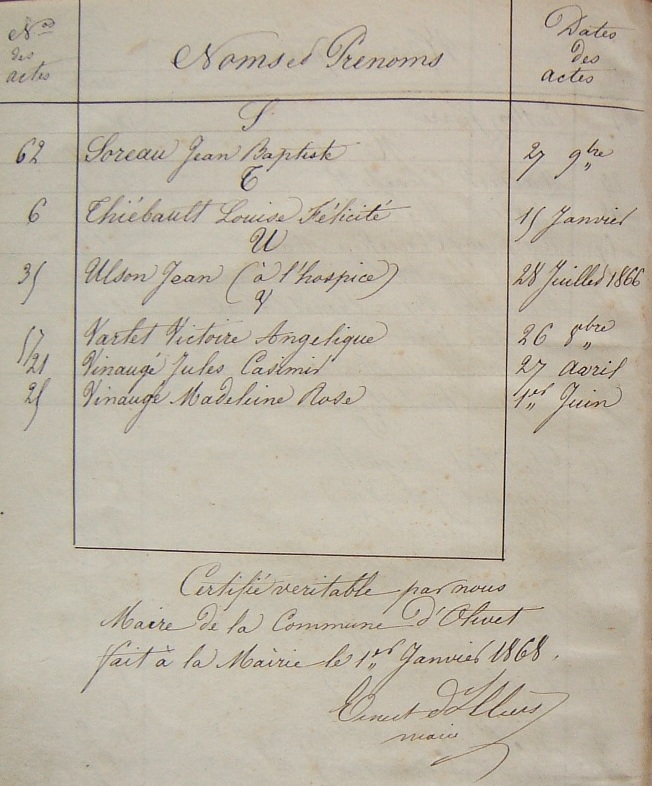 Nos des actes Noms et Prenoms Dates des actes
S
62 Soreau Jean Baptiste 27 9bre "
T
6 Thiébault Louise Félicité 15 Janvier
U
35 Ulson Jean (à l'hospice) 28 Juillet 1866
V
57 Vartet Victoire Angelique 26 8bre "
21 Vinaugé Jules Casimir 27 avril
25 Vinaugé Madeleine Rose 1er " Juin
Certifié veritable par nous
Maire de la Commune d'Olivet
fait à la Mairie le 1er " Janvier 1868.
Ernest d'Illiers
maire